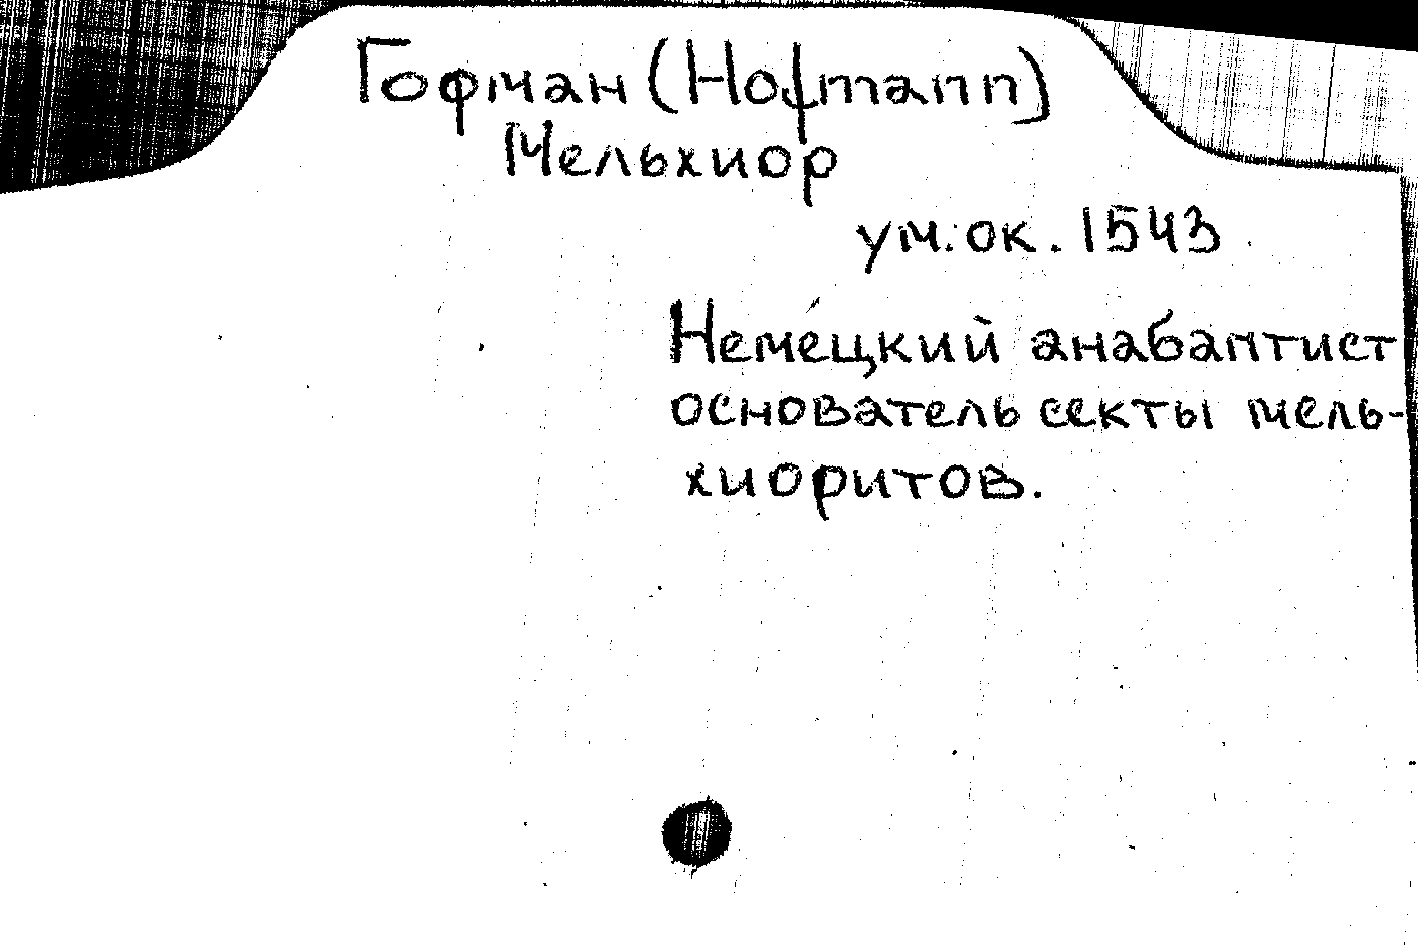 Гофман (Hofmann)
Мельхиор
ум. ок. 1543
Немецкий анабаптист
основатель секты мель-
хиоритов.